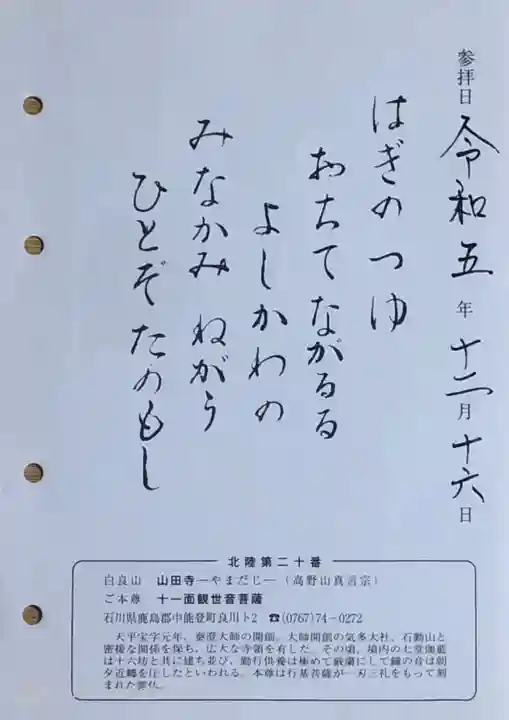 参拝日 令和五年十二月十六日
はぎのつゆ
おちてながるる
よしかわの
みなかみ ねがう
ひとぞたのもし
北陸第二十番
白良山 山田寺―やまだじ―(高野山真言宗)
ご本尊 十一面観世音菩薩
石川県鹿島郡中能登町良川ト2 ☎(0767)74-0272
天平宝字元年、泰澄大師の開創。大師開創の気多大社、石動山と
密接な関係を保ち、広大な寺領を有した。その頃、境内の七堂伽藍
は十六坊と共に建ち並び、勤行供養は極めて厳粛にして鐘の音は朝
夕近郷を圧したといわれる。本尊は行基菩薩が一刃三礼をもって刻
まれた霊仏。